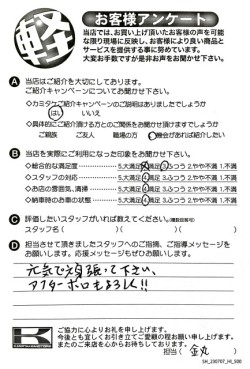 軽
お客様アンケート
当店では、お買い上げ頂いたお客様の声を可能
な限り現場に反映し、お客様により良い商品と
サービスを提供する事に努めています。
大変お手数ですが是非お声をお聞かせ下さい。
A 当店はご紹介を大切にしております。
ご紹介キャンペーンについてお聞かせ下さい。
◇カミタケご紹介キャンペーンのご説明はありましたでしょうか
はい いいえ
◇具体的にご紹介頂ける方とのご関係をお聞かせ頂けますでしょうか
ご親族 ご友人 職場の方 機会があれば紹介したい
B 当店を実際にご利用になった印象をお聞かせ下さい。
◇総合的な満足度 5.大満足 4.満足 3.ふつう 2.やや不満 1.不満
◇スタッフの対応 5.大満足 4.満足 3.ふつう 2.やや不満 1.不満
◇お店の雰囲気、清掃 5.大満足 4.満足 3.ふつう 2.やや不満 1.不満
◇納車時のお車の状態 5.大満足 4.満足 3.ふつう 2.やや不満 1.不満
C 評価したいスタッフがいれば教えてください。(複数回答可)
スタッフ名( )( )( )
D 担当させて頂きましたスタッフへのご指摘、ご指導メッセージを
お願いします。応援メッセージもぜひお願いします。
元気で頑張って下さい。
アフターホローもよろしく!!
ご協力に心よりお礼を申し上げます。
今後とも宜しくお引き立てご愛顧の程お願い申し上げます。
またのご来店を心からお待ちしております。
担当( 金丸 )
SH_230707_HI_500